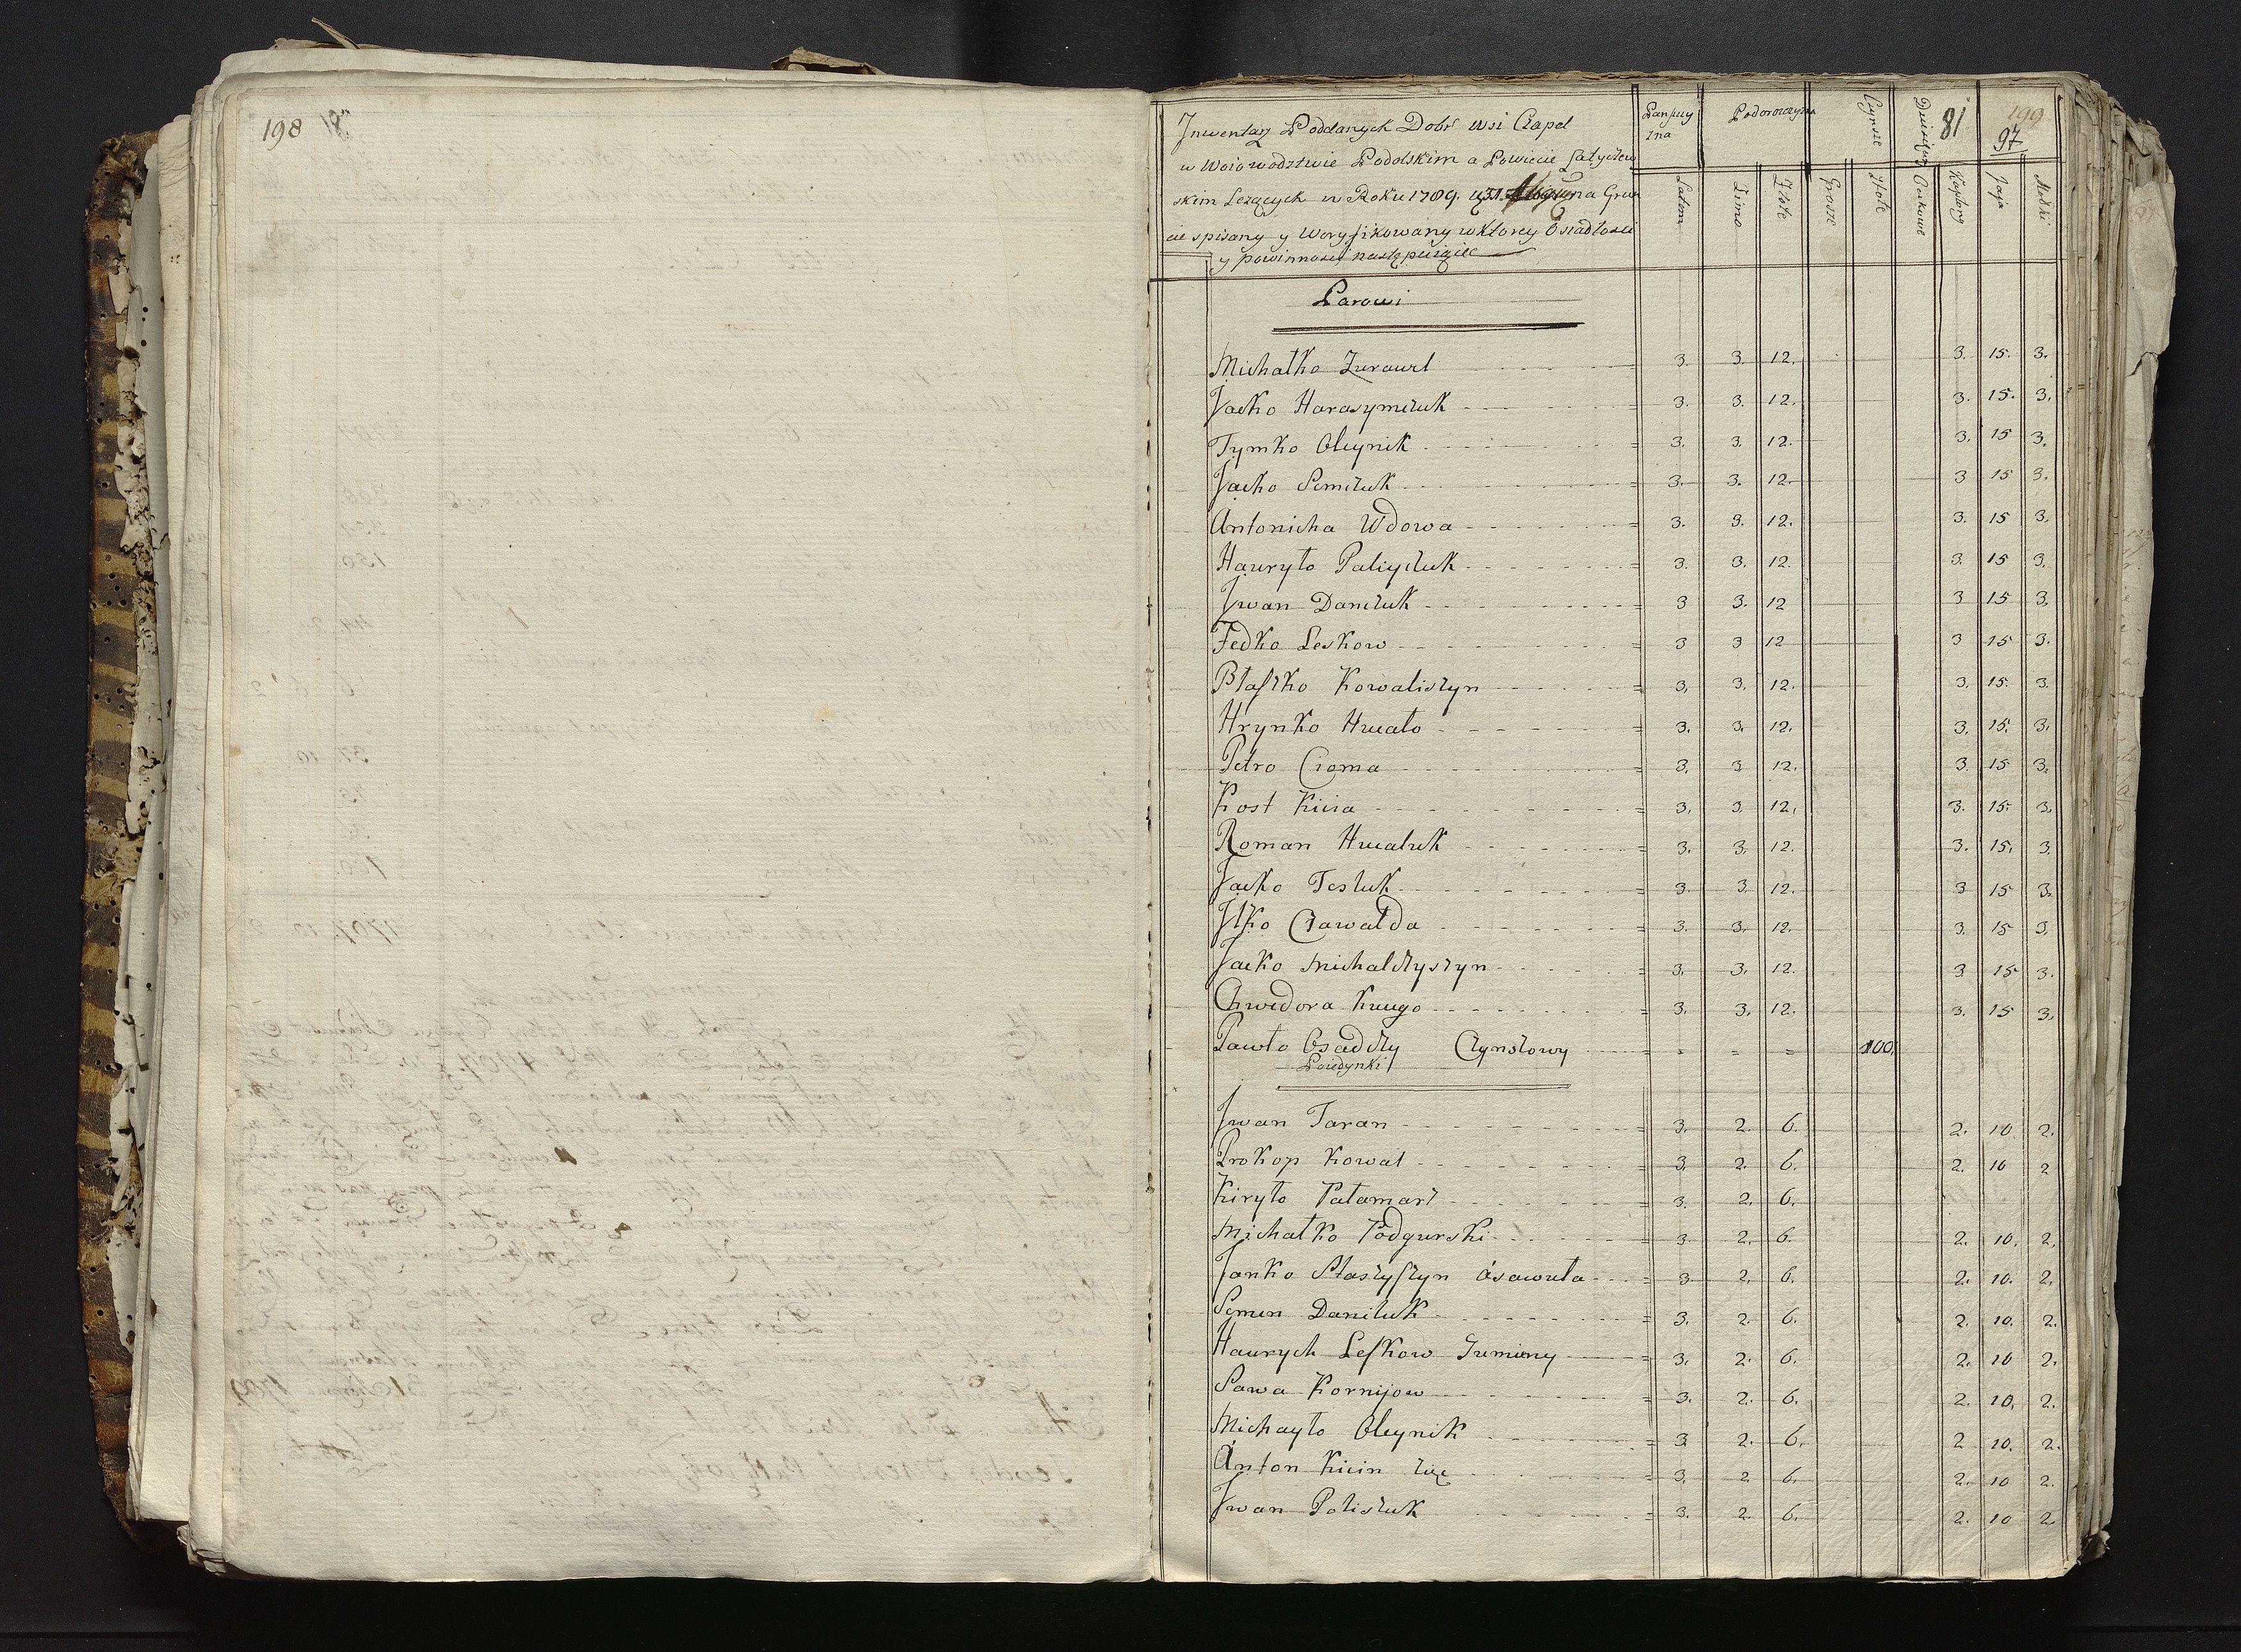 198
81
199
97
Inwentarz Poddanych Dobr wsi Czapel
w Woiowodztwie Podolskim a Powiecie Latyczew
skim Lezących w Roku 1789. 31. na Grun
cie spisany y Weryfikowany w ktorey Osiadłosci
y powinnosci następuiące
Panszczy Podorozczyzna Czynsze Dziesięciny
zna
Latem Zimo Złote Grosze Złote Oczkowe Kapłony Jaja Motki
Parowi
Michałko Zurawel 3. 3. 12. 3. 15. 3.
Jacko Harasymczuk 3. 3. 12. 3. 15. 3.
Tymko Oleynik 3. 3. 12. 3. 15 3.
Jacko Semczuk 3. 3. 12. 3 15 3.
Antonicha Wdowa 3. 3. 12. 3. 15 3.
Hawryło Paliyczuk 3. 3. 12. 3. 15 3.
Iwan Danczuk 3 3. 12 3 15 3.
Fedko Leskow 3 3 12 3 15 3.
Błaszko Kowaliszyn 3. 3. 12. 3. 15. 3.
Hrynko Hucało 3. 3. 12. 3. 15. 3.
Petro Cioma 3. 3 12. 3 15 3.
Kost Kica 3. 3. 12. 3. 15. 3.
Roman Hucaluk 3. 3. 12. 3. 15. 3.
Jacko Tesluk 3. 3. 12. 3 15 3.
Ilko Czawałda 3. 3. 12. 3. 15 3.
Jacko Michalczyszyn 3. 3. 12. 3 15 3.
Chwedora Kuugo 3. 3. 12. 3. 15 3.
Pawło Osadczy Czynszowy = = = 100.
Poiedynki
Iwan Taran 3. 2. 6. 2. 10 2.
Prokop Kowal 3. 2. 6. 2. 10 2
Kiryło Pałamarz 3. 2. 6.
Michałko Podgurski 3. 2. 6. 2. 10. 2.
Janko Staszyszyn asawuła 3. 2. 6. 2. 10. 2.
Semen Daniluk 3. 2. 6. 2. 10. 2.
Hawrych Leskow Gumieny 3. 2. 6. 2. 10 2.
Sawa Kornijow 3. 2. 6. 2. 10. 2.
Michayło Oleynik 3. 2. 6. 2 10. 2.
Anton Kicin zięc 3. 2 6. 2. 10 2.
Iwan Poliszuk 3. 2. 6. 2. 10 2